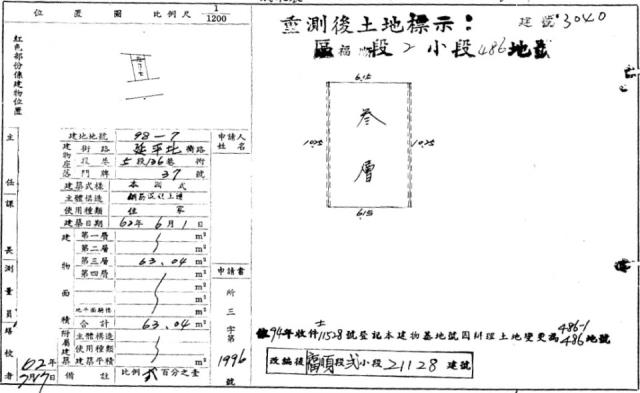 位置圖 比例尺 1/1200
紅色部份係建物位置
重測後土地標示：
建號：3040
區福順段2小段486地號
建地地號 98－7
申請人姓名
建物座落
街路 延平北街路
段巷 5段136巷 衖
門牌 37號
建築式樣 本國式
主體構造
使用種類 住家
建築日期 62年6月1日
建物面積
第一層 m²
第二層 m²
第三層 63.04 m²
第四層 m²
m²
m²
地平面騎樓 m²
合計 63.04 m²
附屬建築
主體構造
使用種類
建築平積 m²
備註 比例尺 貳百分之壹
申請書
所三字第1996號
主任
課長
測量員
校者
62年7月17日
6.15
10.25
叁層
10.25
6.15
94年收件士11528號登記本建物基地號因辦理土地變更為486-1 486地號
改編後福順段貳小段21128建號